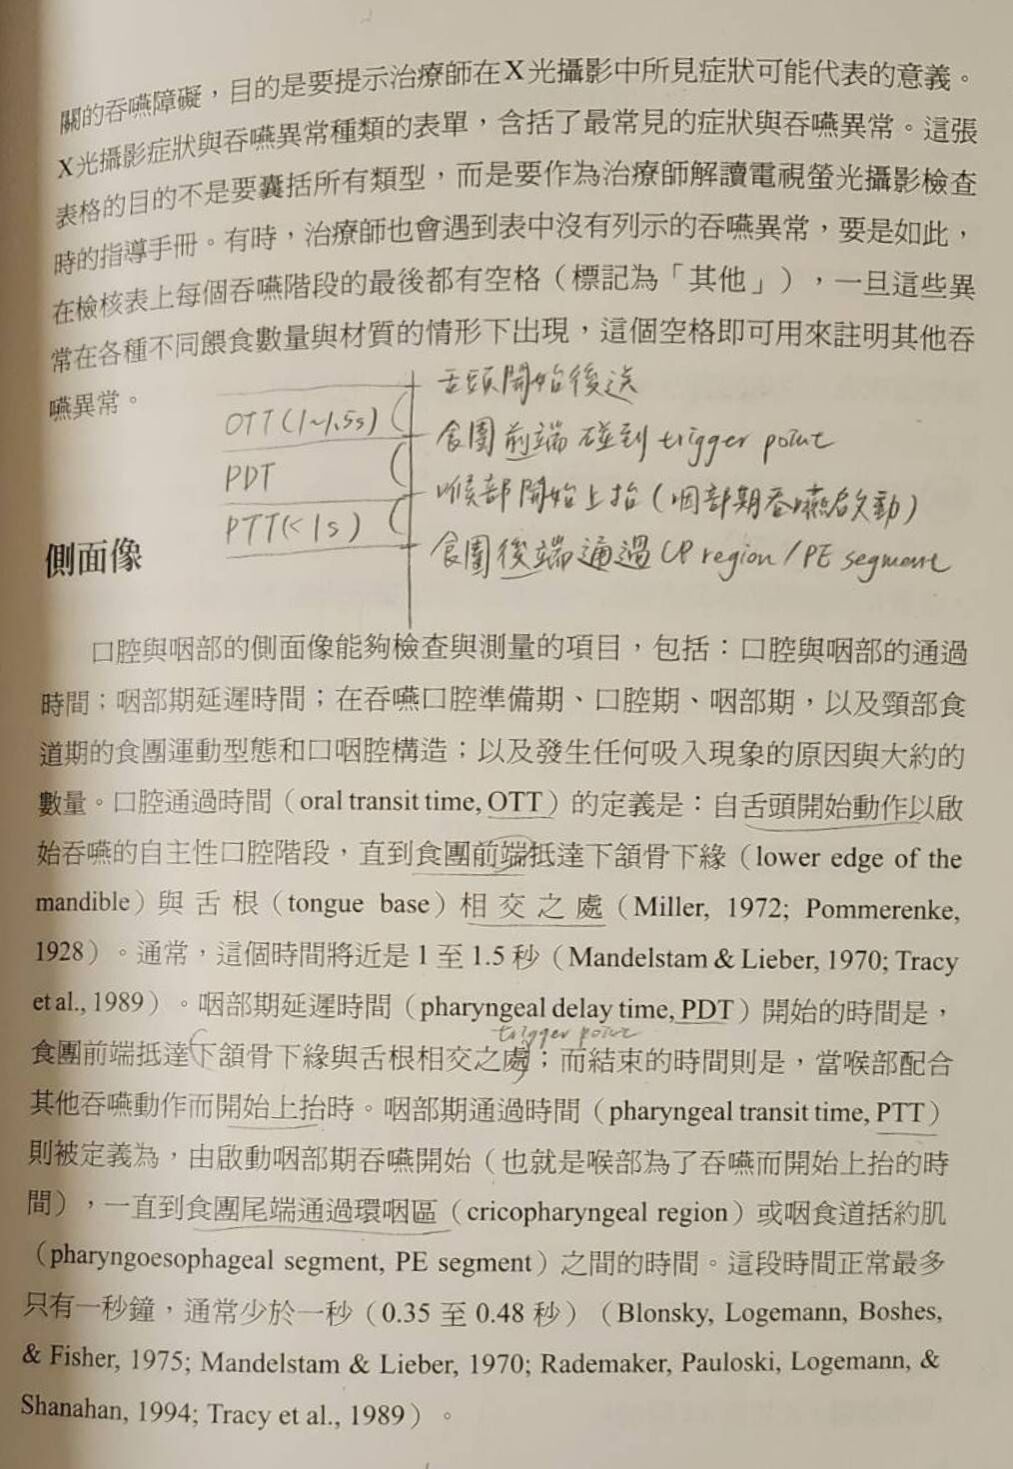 關的吞嚥障礙，目的是要提示治療師在X光攝影中所見症狀可能代表的意義。
X光攝影症狀與吞嚥異常種類的表單，含括了最常見的症狀與吞嚥異常。這張
表格的目的不是要囊括所有類型，而是要作為治療師解讀電視螢光攝影檢查
時的指導手冊。有時，治療師也會遇到表中沒有列示的吞嚥異常，要是如此，
在檢核表上每個吞嚥階段的最後都有空格（標記為「其他」），一旦這些異
常在各種不同餵食數量與材質的情形下出現，這個空格即可用來註明其他吞
嚥異常。
舌頭開始後送
OTT (1~1.5s)
食團前端碰到 trigger point
PDT
喉部開始上抬（咽部期吞嚥啟動）
PTT (< 1s)
食團後端通過 CP region / PE segment
側面像
口腔與咽部的側面像能夠檢查與測量的項目，包括：口腔與咽部的通過
時間；咽部期延遲時間；在吞嚥口腔準備期、口腔期、咽部期，以及頸部食
道期的食團運動型態和口咽腔構造；以及發生任何吸入現象的原因與大約的
數量。口腔通過時間（oral transit time, OTT）的定義是：自舌頭開始動作以啟
始吞嚥的自主性口腔階段，直到食團前端抵達下頷骨下緣（lower edge of the
mandible）與舌根（tongue base）相交之處（Miller, 1972; Pommerenke,
1928）。通常，這個時間將近是 1 至 1.5 秒（Mandelstam & Lieber, 1970; Tracy
et al., 1989）。咽部期延遲時間（pharyngeal delay time, PDT）開始的時間是，
trigger point
食團前端抵達下頷骨下緣與舌根相交之處；而結束的時間則是，當喉部配合
其他吞嚥動作而開始上抬時。咽部期通過時間（pharyngeal transit time, PTT）
則被定義為，由啟動咽部期吞嚥開始（也就是喉部為了吞嚥而開始上抬的時
間），一直到食團尾端通過環咽區（cricopharyngeal region）或咽食道括約肌
（pharyngoesophageal segment, PE segment）之間的時間。這段時間正常最多
只有一秒鐘，通常少於一秒（0.35 至 0.48 秒）（Blonsky, Logemann, Boshes,
& Fisher, 1975; Mandelstam & Lieber, 1970; Rademaker, Pauloski, Logemann, &
Shanahan, 1994; Tracy et al., 1989）。